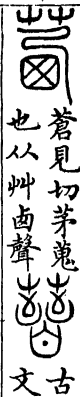 蒼見切茅蒐
也从艸卥聲
古
文